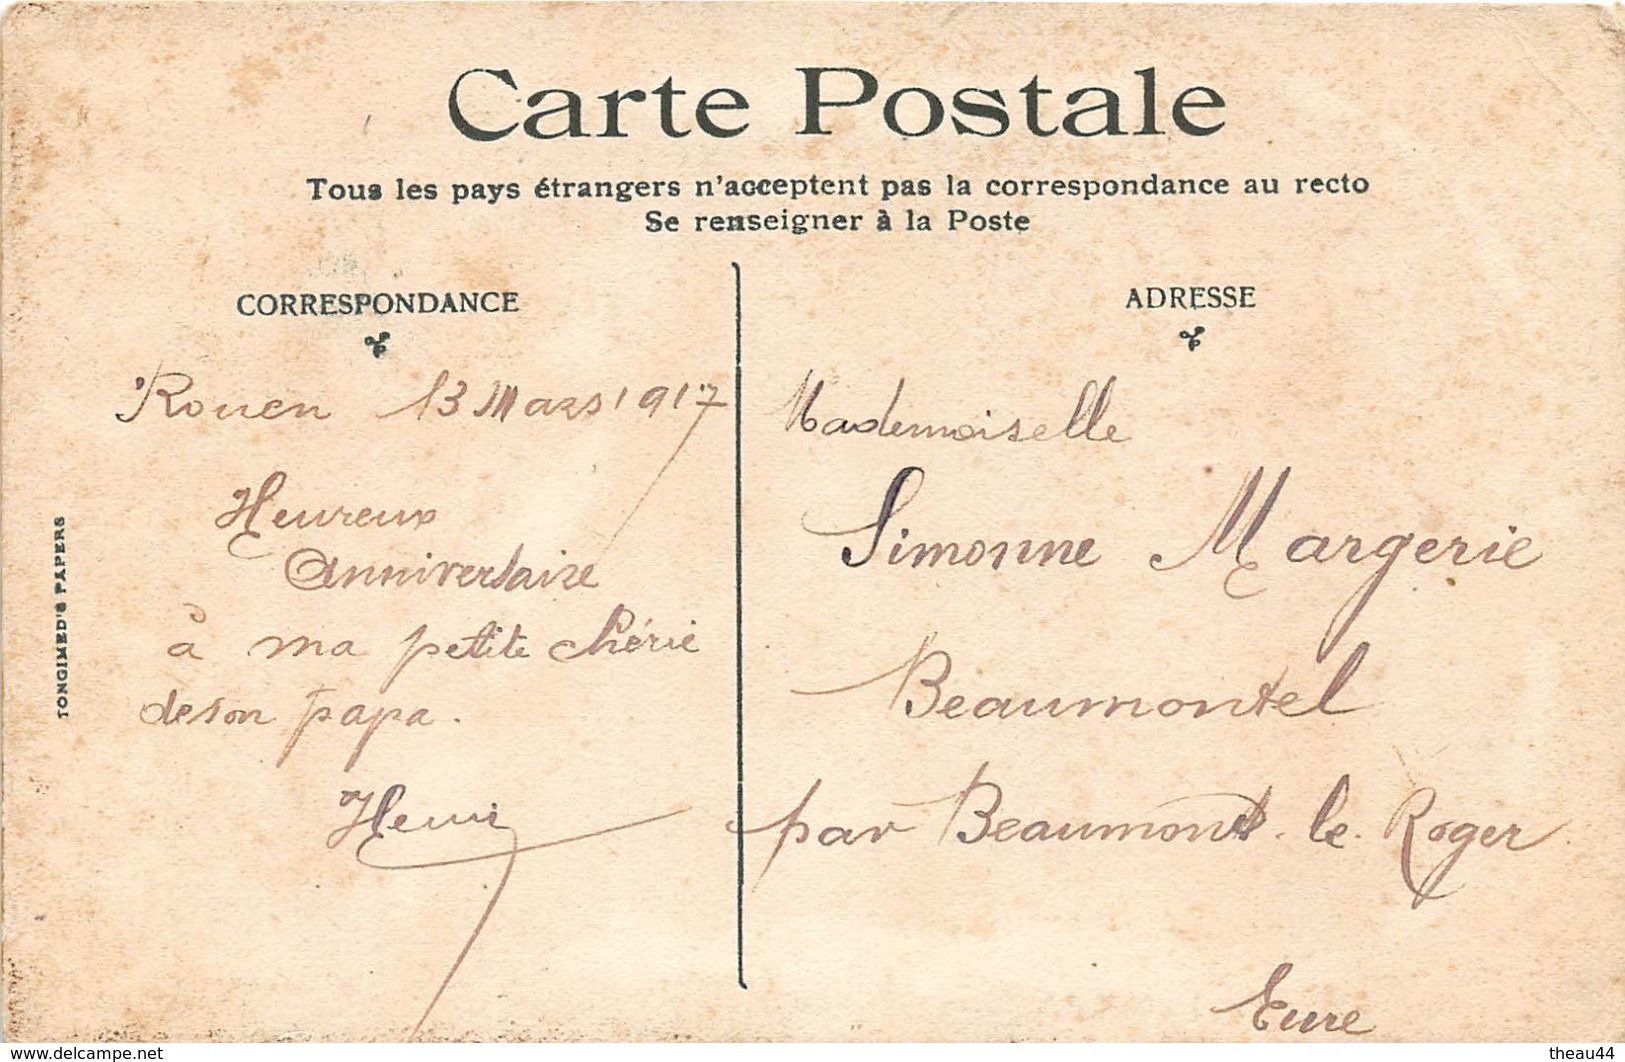 Carte Postale
Tous les pays étrangers n'acceptent pas la correspondance au recto
Se renseigner à la Poste
CORRESPONDANCE
Rouen 13 Mars 1917
Heureux
Anniversaire
à ma petite chérie
de son papa.
Henri
TONGIMED'S PAPERS
ADRESSE
Mademoiselle
Simonne Margerie
Beaumontel
par Beaumont-le-Roger
Eure
www.delcampe.net
theau44